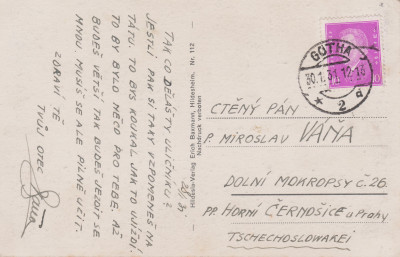 TAK CO DĚLÁŠ TY ULIČNÍKU?
JESTLI PAK SI TAKY VZPOMENEŠ NA
TÁTU. TO BYS KOUKAL JAK TO UJÍŽDÍ.
TO BY BYLO NĚCO PRO TEBE. AŽ
BUDEŠ VĚTŠÍ TAK BUDEŠ JEZDIT SE
MNOU. MUSÍŠ SE ALE PILNĚ UČIT.
ZDRAVÍ TĚ
TVŮJ OTEC
Hildesia-Verlag Erich Baxmann, Hildesheim, Nr. 112
Nachdruck verboten
GOTHA
30.1.31.12-13
* 2 d
CTĚNÝ PÁN
P. MIROSLAV VÁŇA
DOLNÍ MOKROPSY Č. 26
PP. HORNÍ ČERNOŠICE u Prahy
TSCHECHOSLOWAREI